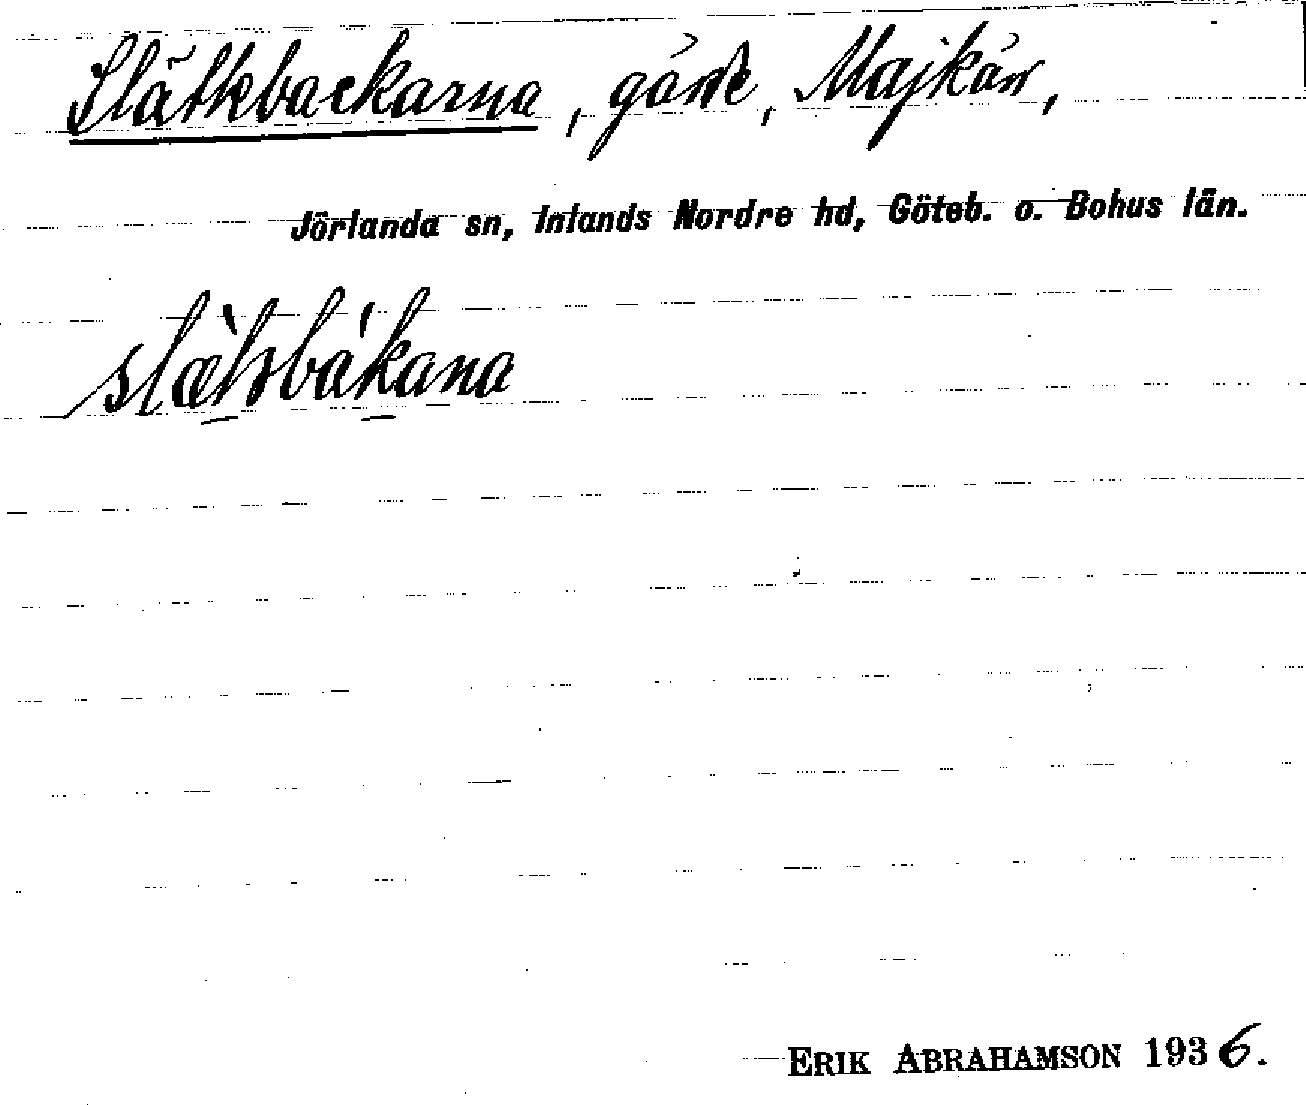 Slättebackarna, gärde, Majkärr,
Jörlanda sn, Inlands Nordre hd, Göteb. o. Bohus län.
ERIK ABRAHAMSON 1936.